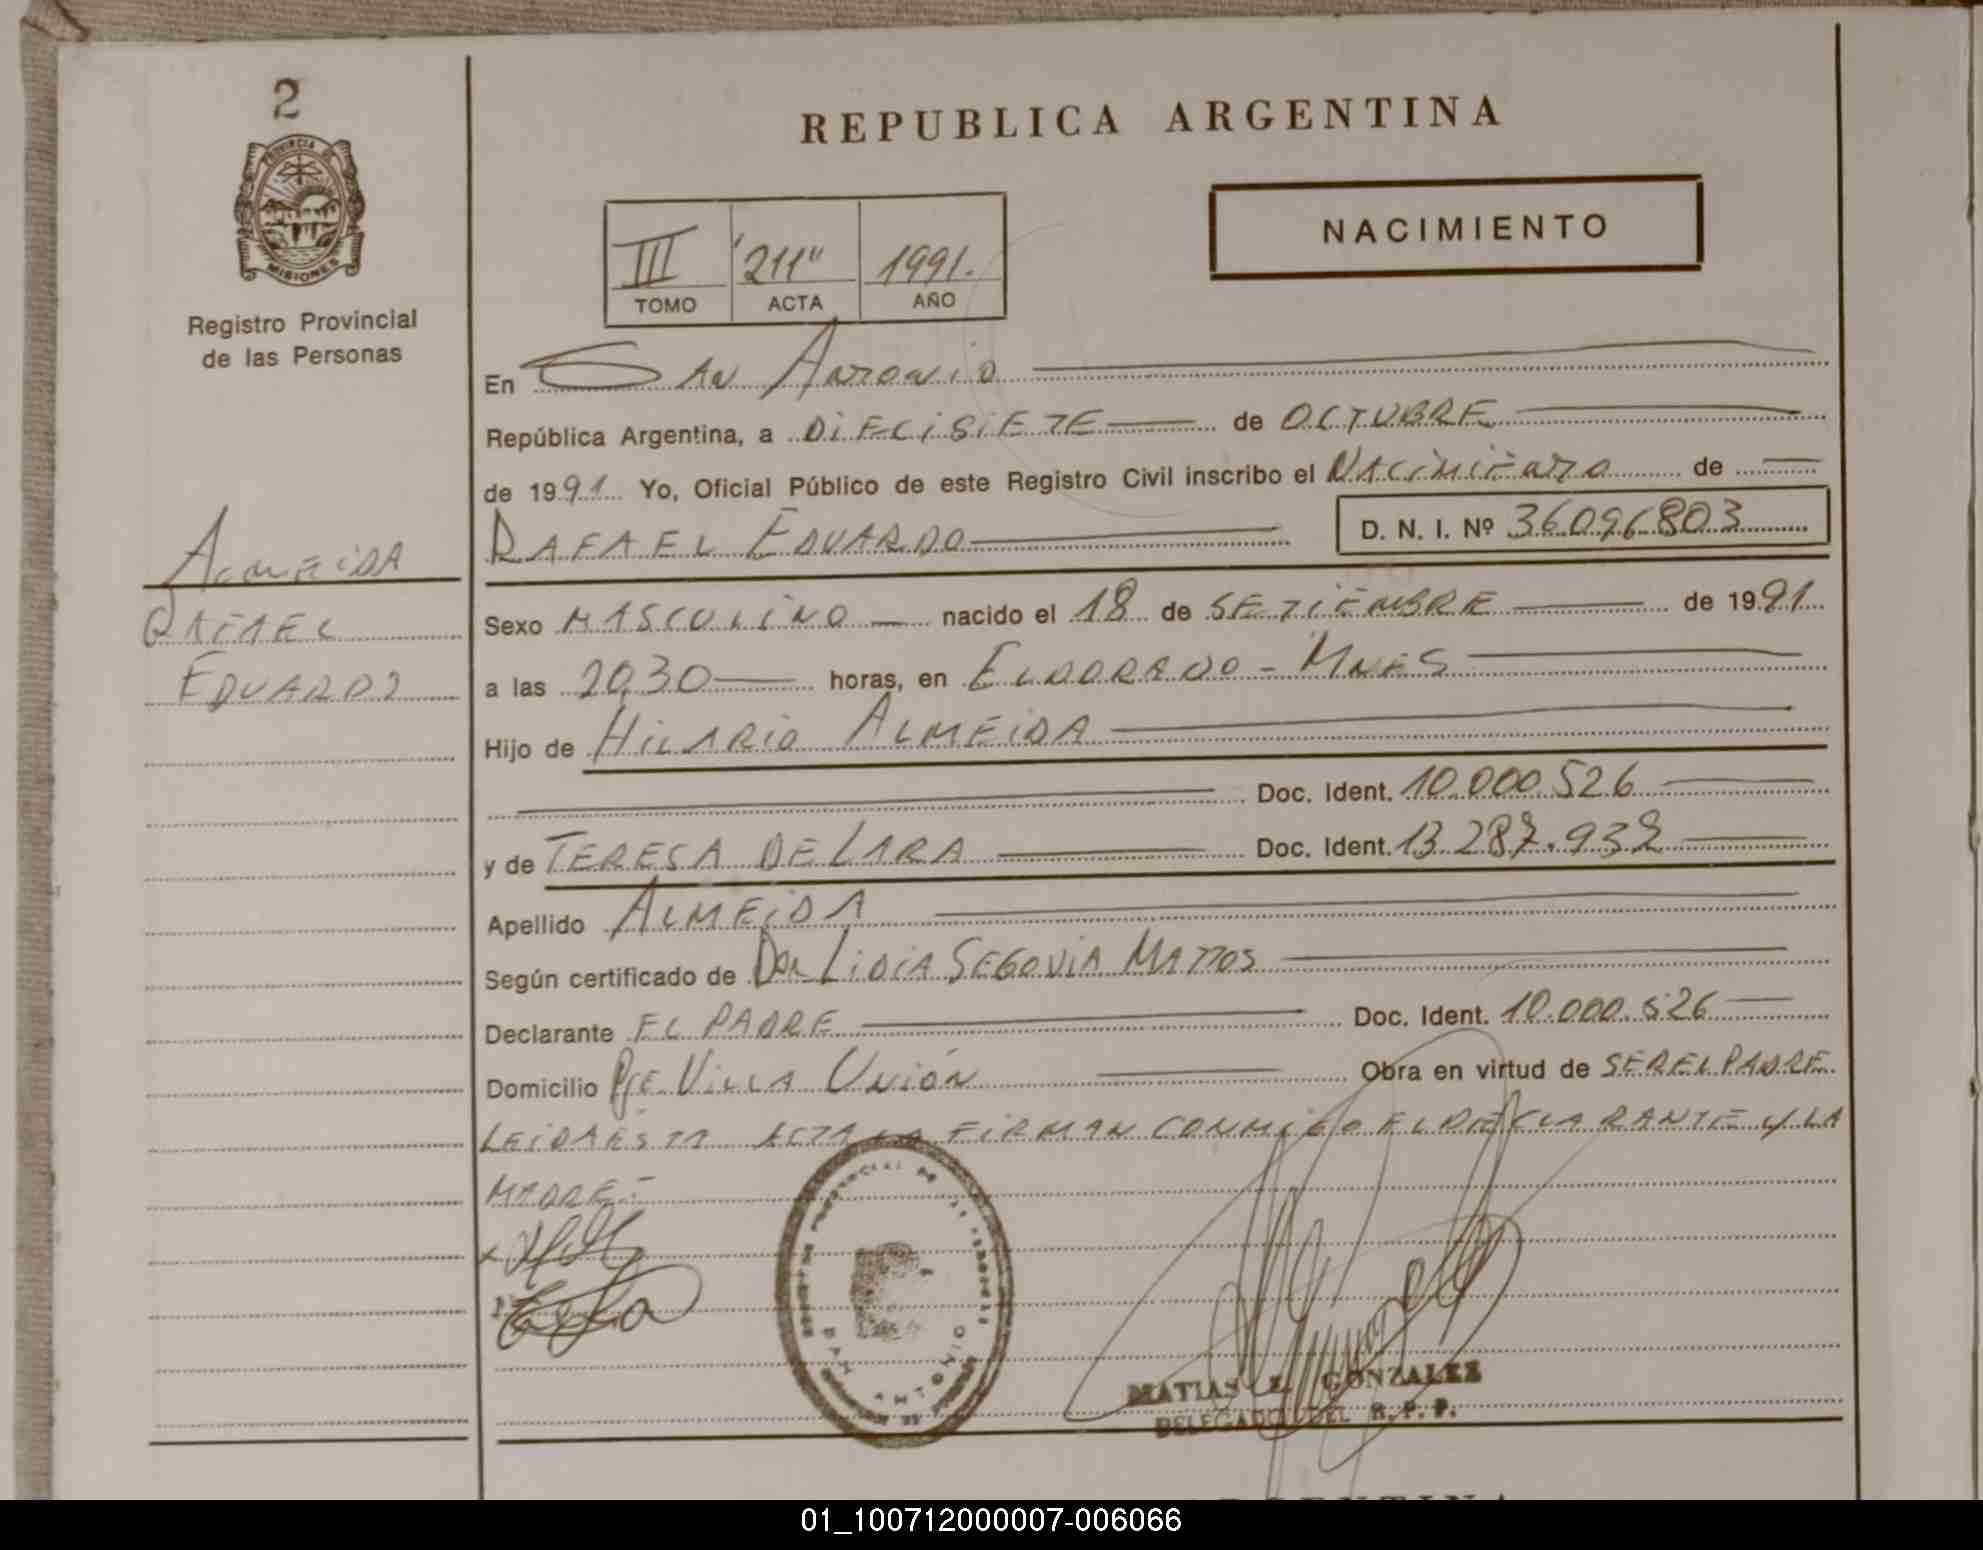 2
REPUBLICA ARGENTINA
PROVINCIA DE
MISIONES
Registro Provincial
de las Personas
III "211" 1991.
TOMO ACTA AÑO
NACIMIENTO
En San Antonio
República Argentina, a DIECISIETE de OCTUBRE
de 1991 Yo, Oficial Público de este Registro Civil inscribo el Nacimiento de
RAFAEL EDUARDO D. N. I. Nº 36096803
ALMEIDA
RAFAEL
EDUARDO
Sexo MASCULINO nacido el 18 de SETIEMBRE de 1991
a las 20,30 horas, en ELDORADO - MNES
Hijo de HILARIO ALMEIDA
Doc. Ident. 10.000.526
y de TERESA DE LARA Doc. Ident. 13.287.932
Apellido ALMEIDA
Según certificado de Dra LIDIA SEGOVIA MATTOS
Declarante EL PADRE Doc. Ident. 10.000.526
Domicilio Pje VILLA UNIÓN Obra en virtud de SER EL PADRE
LEIDA ESTA ACTA LA FIRMAN CONMIGO EL DECLARANTE Y LA
MADRE.-
SAN ANTONIO
MATIAS E. GONZALEZ
DELEGADO DEL R. P. P.
01_100712000007-006066